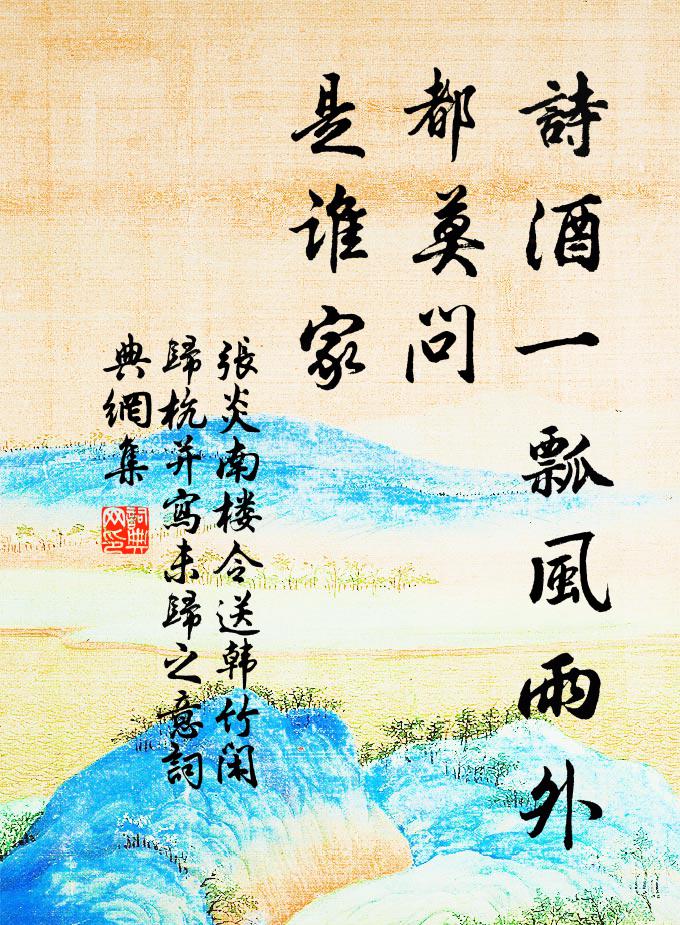 詩酒一瓢風雨外
都莫問
是誰家
張炎南楼令送韩竹閑
歸杭并寫未歸之意詞
典網集
詞典网印